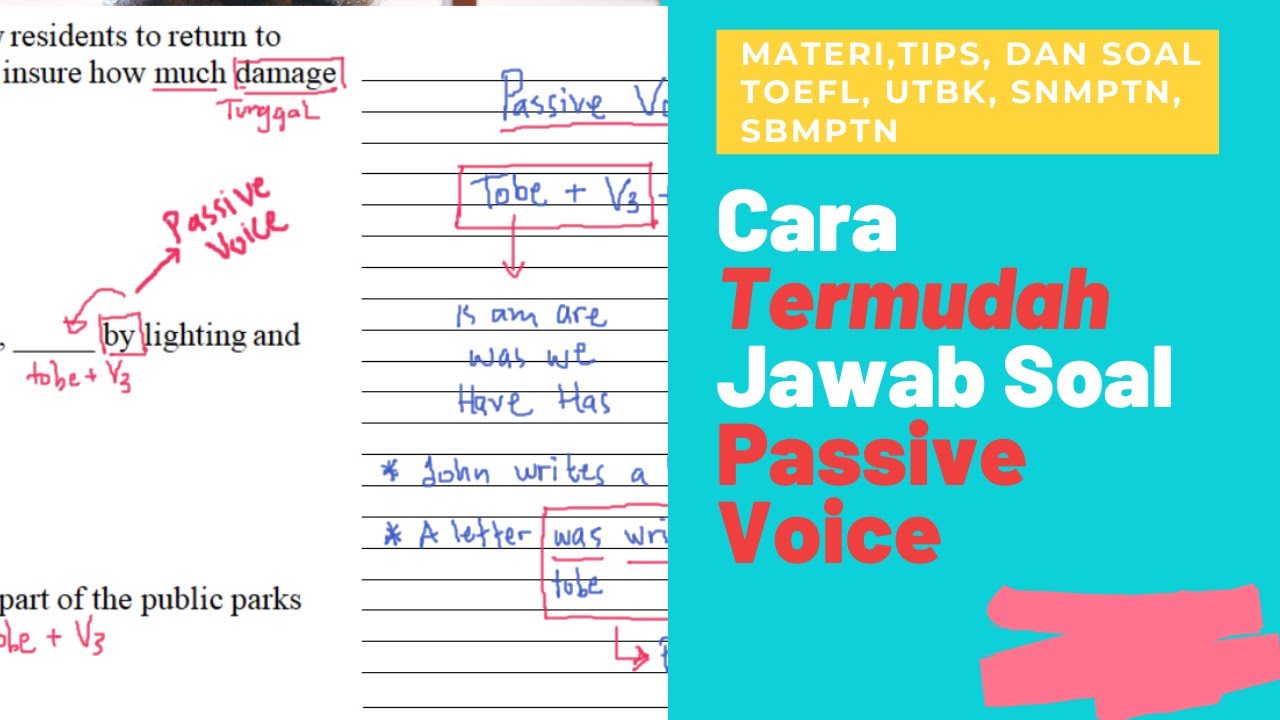 residents to return to
insure how much damage
Tunggal
Passive
Voice
by lighting and
tobe + V3
part of the public parks
obe + V3
Passive
Tobe + V3
is am are
was we
Have Has
* John writes a
* A letter was wri
tobe
MATERI,TIPS, DAN SOAL
TOEFL, UTBK, SNMPTN,
SBMPTN
Cara
Termudah
Jawab Soal
Passive
Voice